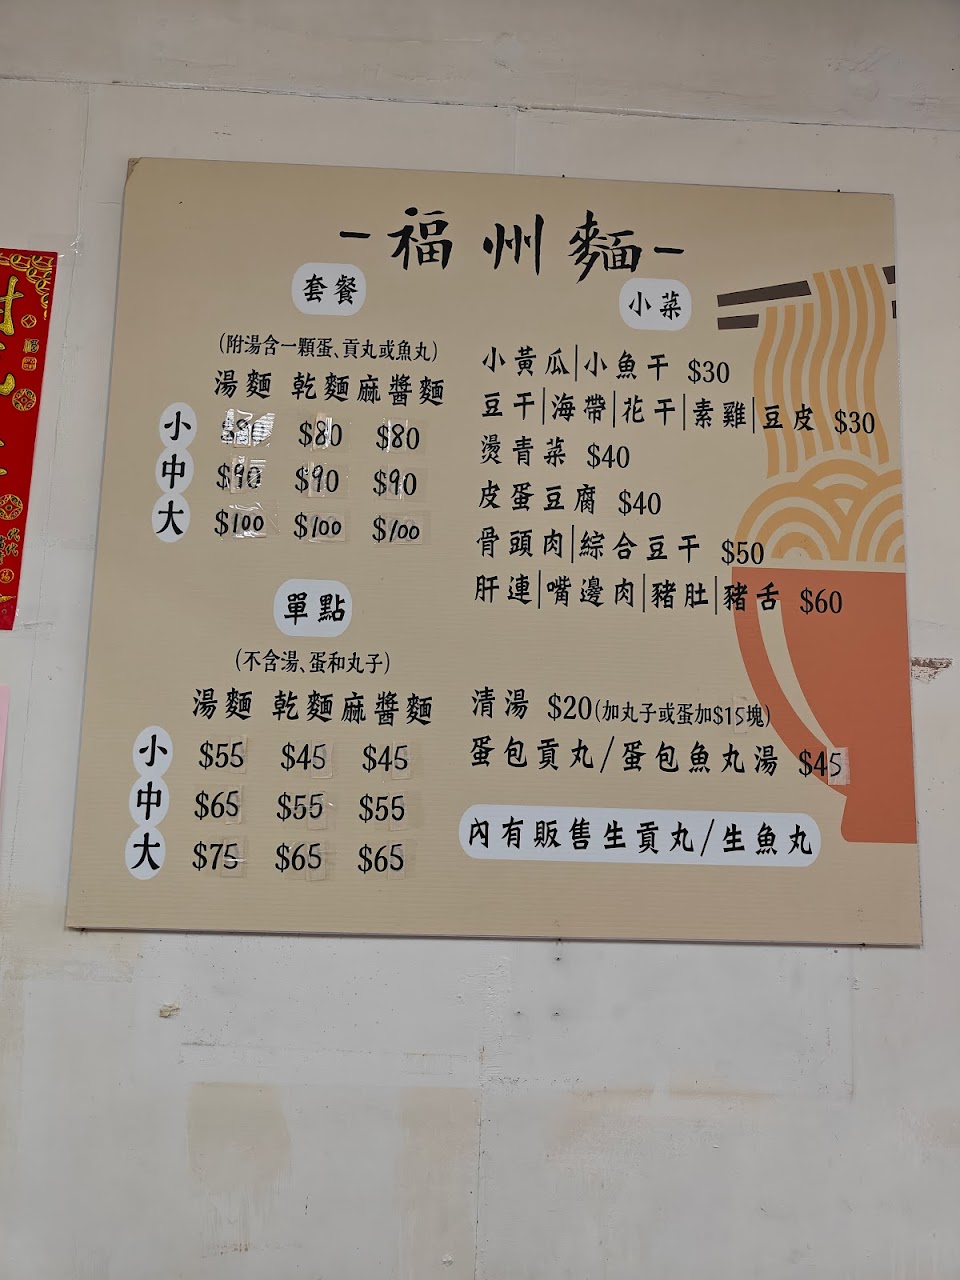 -福州麵-
套餐
(附湯含一顆蛋、貢丸或魚丸)
湯麵 乾麵 麻醬麵
小 $80 $80 $80
中 $90 $90 $90
大 $100 $100 $100
單點
(不含湯、蛋和丸子)
湯麵 乾麵 麻醬麵
小 $55 $45 $45
中 $65 $55 $55
大 $75 $65 $65
小菜
小黃瓜|小魚干 $30
豆干|海帶|花干|素雞|豆皮 $30
燙青菜 $40
皮蛋豆腐 $40
骨頭肉|綜合豆干 $50
肝連|嘴邊肉|豬肚|豬舌 $60
清湯 $20(加丸子或蛋加$15塊)
蛋包貢丸/蛋包魚丸湯 $45
內有販售生貢丸/生魚丸